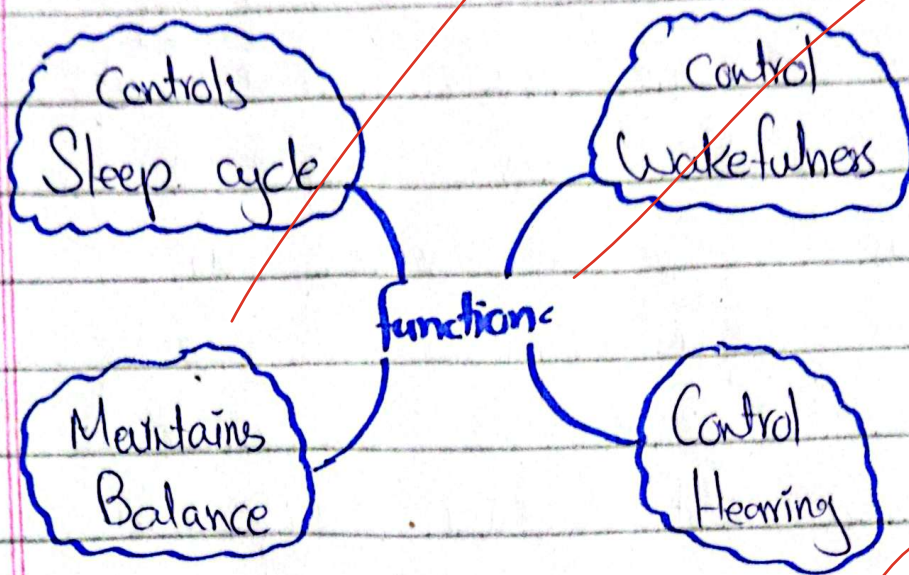 Controls
Sleep cycle
Control
Wakefulness
functions
Maintains
Balance
Control
Hearing